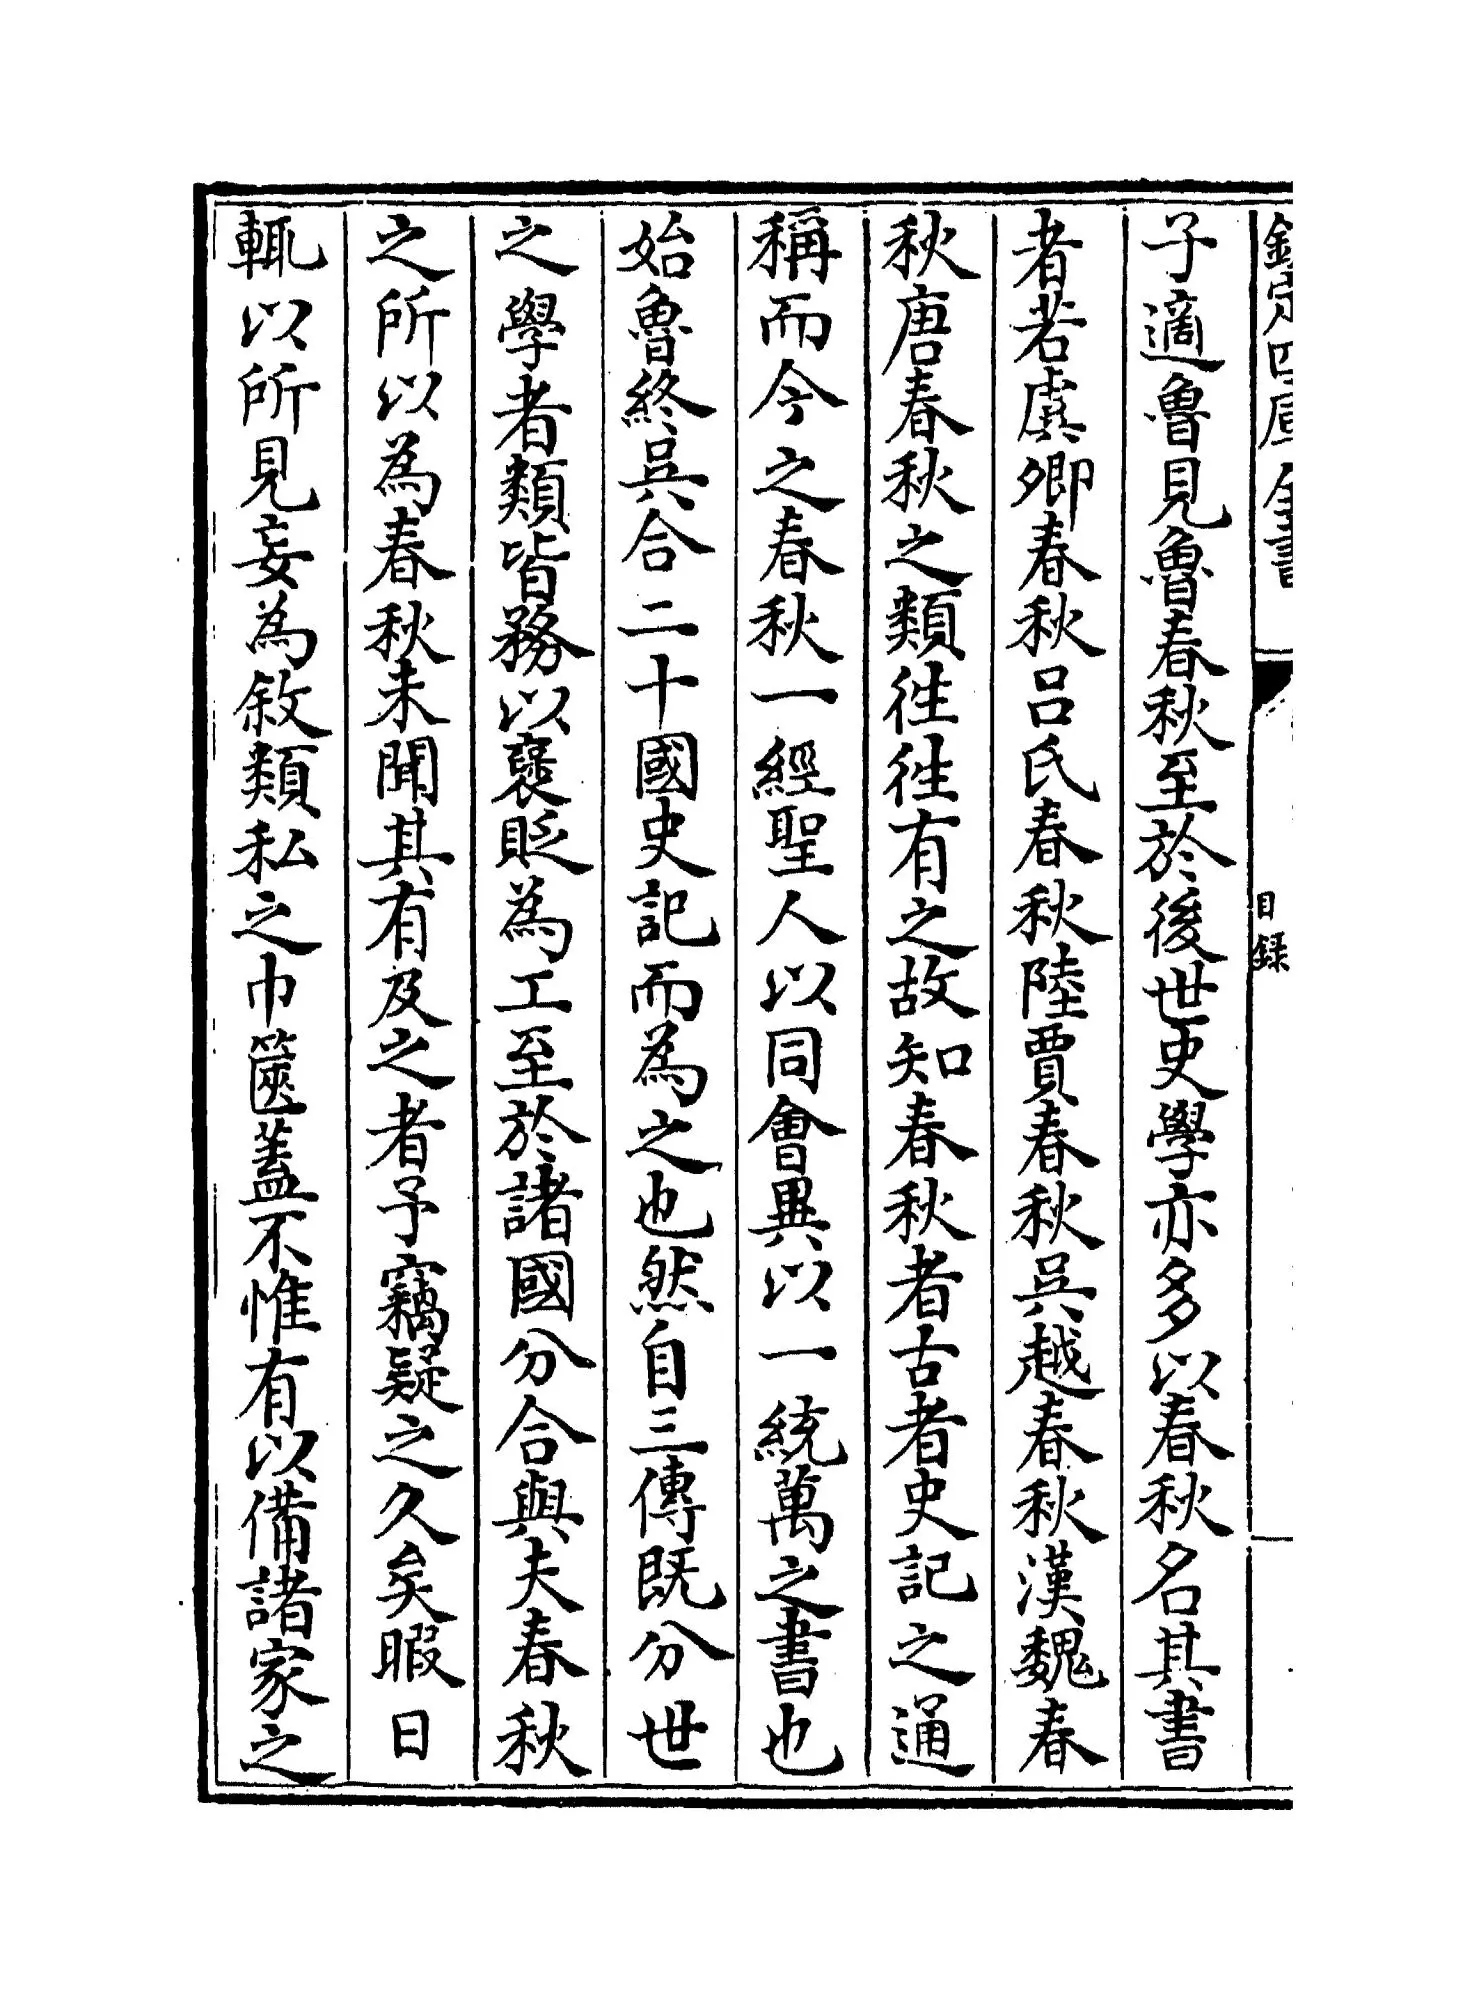 欽定四庫全書
目録
子適魯見魯春秋至於後世史學亦多以春秋名其書
者若虞卿春秋呂氏春秋陸賈春秋吳越春秋漢魏春
秋唐春秋之類往往有之故知春秋者古者史記之通
稱而今之春秋一經聖人以同會異以一統萬之書也
始魯終吳合二十國史記而為之也然自三傳既分世
之學者類皆務以襃貶為工至於諸國分合與夫春秋
之所以為春秋未聞其有及之者予竊疑之久矣暇日
輒以所見妄為敘類私之巾篋蓋不惟有以備諸家之